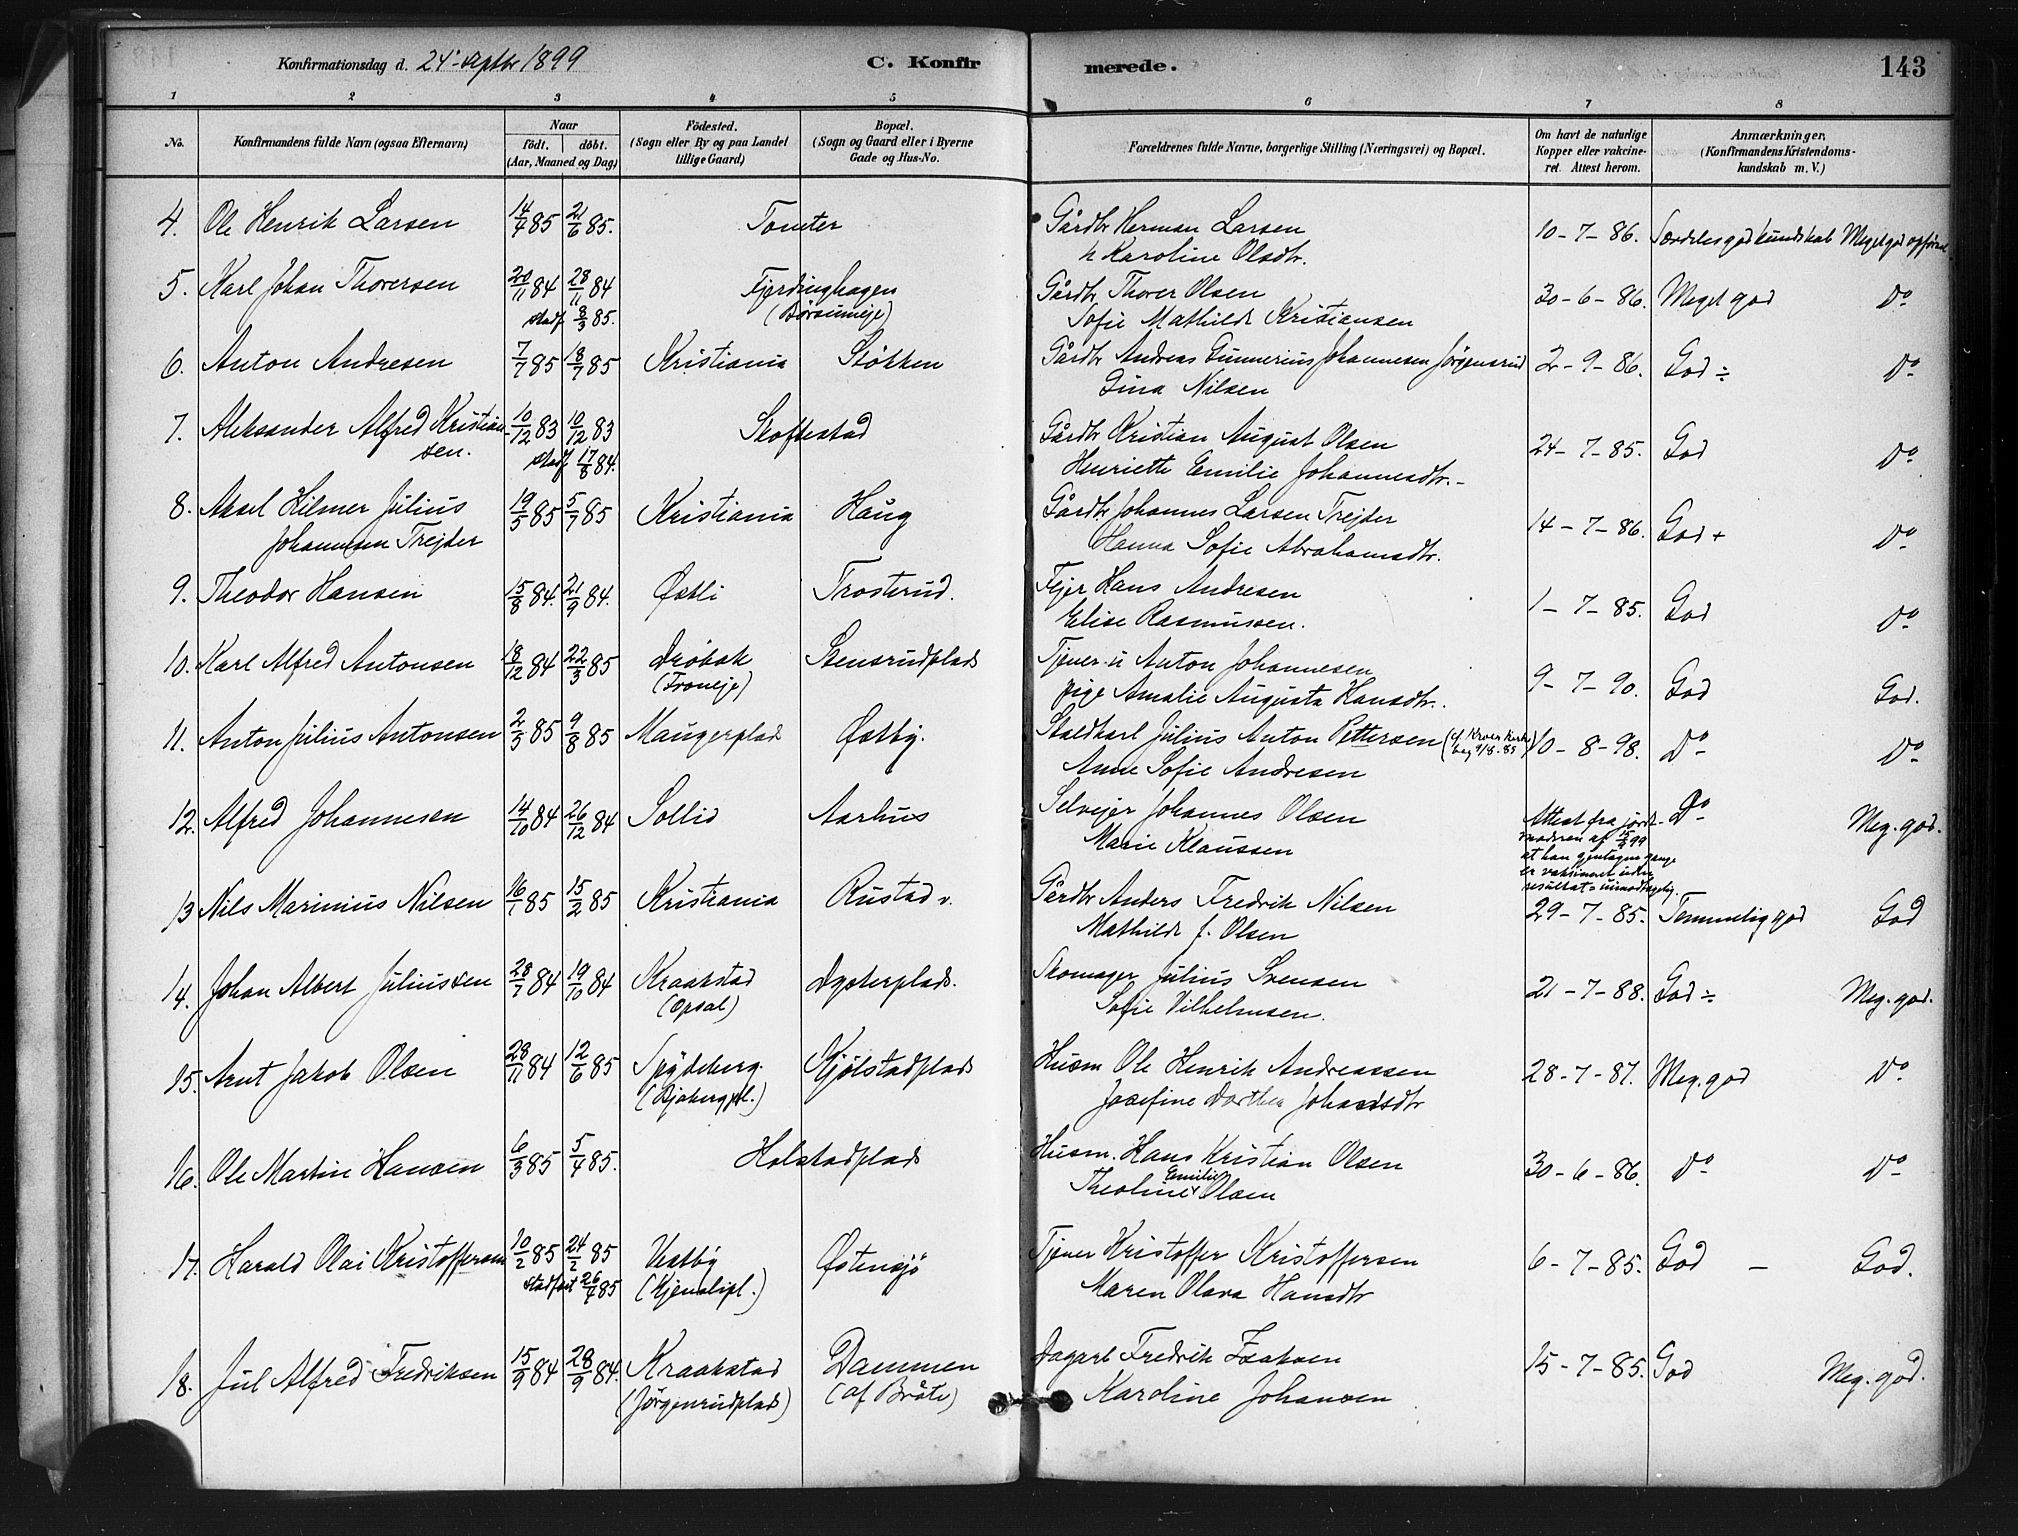 Konfirmationsdag d. 24 septbr 1899
C. Konfirmerede.
143
1 2 3 4 5 6 7 8
No.
Konfirmandens fulde Navn (ogsaa Efternavn)
Naar
født. døbt.
(Aar, Maaned og Dag)
Fødested.
(Sogn eller By og paa Landet
tillige Gaard)
Bopæl.
(Sogn og Gaard eller i Byerne
Gade og Hus-No.
Forældrenes fulde Navne, borgerlige Stilling (Næringsvei) og Bopæl.
Om havt de naturlige
Kopper eller vakcine-
ret. Attest herom.
Anmærkninger.
(Konfirmandens Kristendoms-
kundskab m. V.)
4. Ole Henrik Larsen 14/4 85 21/6 85. Tomter Gårdbr Herman Larsen 10-7-86. Særdeles god kundskab Meget god opførsel
h Karoline Olsdtr.
5. Karl Johan Thoresen 20/11 84 28/11 84 Fjerdinghagen Gårdbr Thorer Olsen 30-6-86. Meget god Do
stadf 8/3 85. (Børsumeje) Sofie Mathilde Kristiansen
6. Anton Andresen 7/7 85 18/7 85 Kristiania Støkken Gårdbr Andreas Gunnerius Johannesen Jørgensrud 2-9-86. God ÷ Do
Gina Nilsen
7. Aleksander Alfred Kristian- 10/12 83 10/12 83 Skoftestad Gårdbr Kristian August Olsen 24-7-85. God Do
sen. stadf 17/8 84. Henriette Emilie Johannesdtr.
8. Aksel Hilmer Julius 19/5 85 5/7 85 Kristiania Haug Gårdbr Johannes Larsen Trejder 14-7-86. God + Do
Johannesen Trejder Hanna Sofie Abrahamsdtr.
9. Theodor Hansen 15/8 84. 21/9 84. Østli Trosterud. Fejer Hans Andresen 1-7-85. God Do
Elise Rasmussen.
10. Karl Alfred Antonsen 18/12 84 22/3 85 Drøbak Stensrudplads Tjener u Anton Johannesen 9-7-90. God God.
(Froneje) pige Amalie Augusta Hansdtr.
11. Anton Julius Antonsen 2/3 85 9/8 85 Maugerplads Østby. Staldkarl Julius Anton Pettersen 10-8-98. Do Do
Anne Sofie Andresen
12. Alfred Johannesen 14/10 84 26/12 84 Sollid Aarhus Selvejer Johannes Olsen Attest fra jord- Do Meg. god.
Marie Klaussen moderen af 15/9 99
at han gjentagne gange
er vaksineret uden
resultat = uimodtagelig.
13 Nils Marinius Nilsen 16/1 85 15/2 85 Kristiania Rustad v. Gårdbr Anders Fredrik Nilsen 29-7-85. Temmelig god God
Mathilde f. Olsen
14. Johan Albert Juliussen 28/7 84 19/10 84 Kraakstad Dysterplads. Skomager Julius Svensen 21-7-88. God ÷ Meg. god.
(Opsal) Sofie Vilhelmsen.
15. Arnt Jakob Olsen 28/11 84 12/6 85 Spydeberg. Kjølstadplads Husm Ole Henrik Andreassen 28-7-87. Meg. god Do
Josefine Dorthea Johansdtr
16. Ole Martin Hansen 6/3 85 5/4 85. Holstadplads Husm. Hans Kristian Olsen 30-6-86. Do Do
Theoline Emilie Olsen
17. Harald Olai Kristoffersen 10/2 85 24/2 85 Vestby Østensjø Tjener Kristoffer Kristoffersen 6-7-85. God - God.
stadfæst 26/4 85 (Kjenslipl.) Maren Olava Hansdtr
18. Jul Alfred Fredriksen 15/9 84 28/9 84. Kraakstad Dammen Dagarb Fredrik Isaksen 15-7-85. God Meg. god.
(Jørgenrudplads) (af Bråte) Karoline Johansen